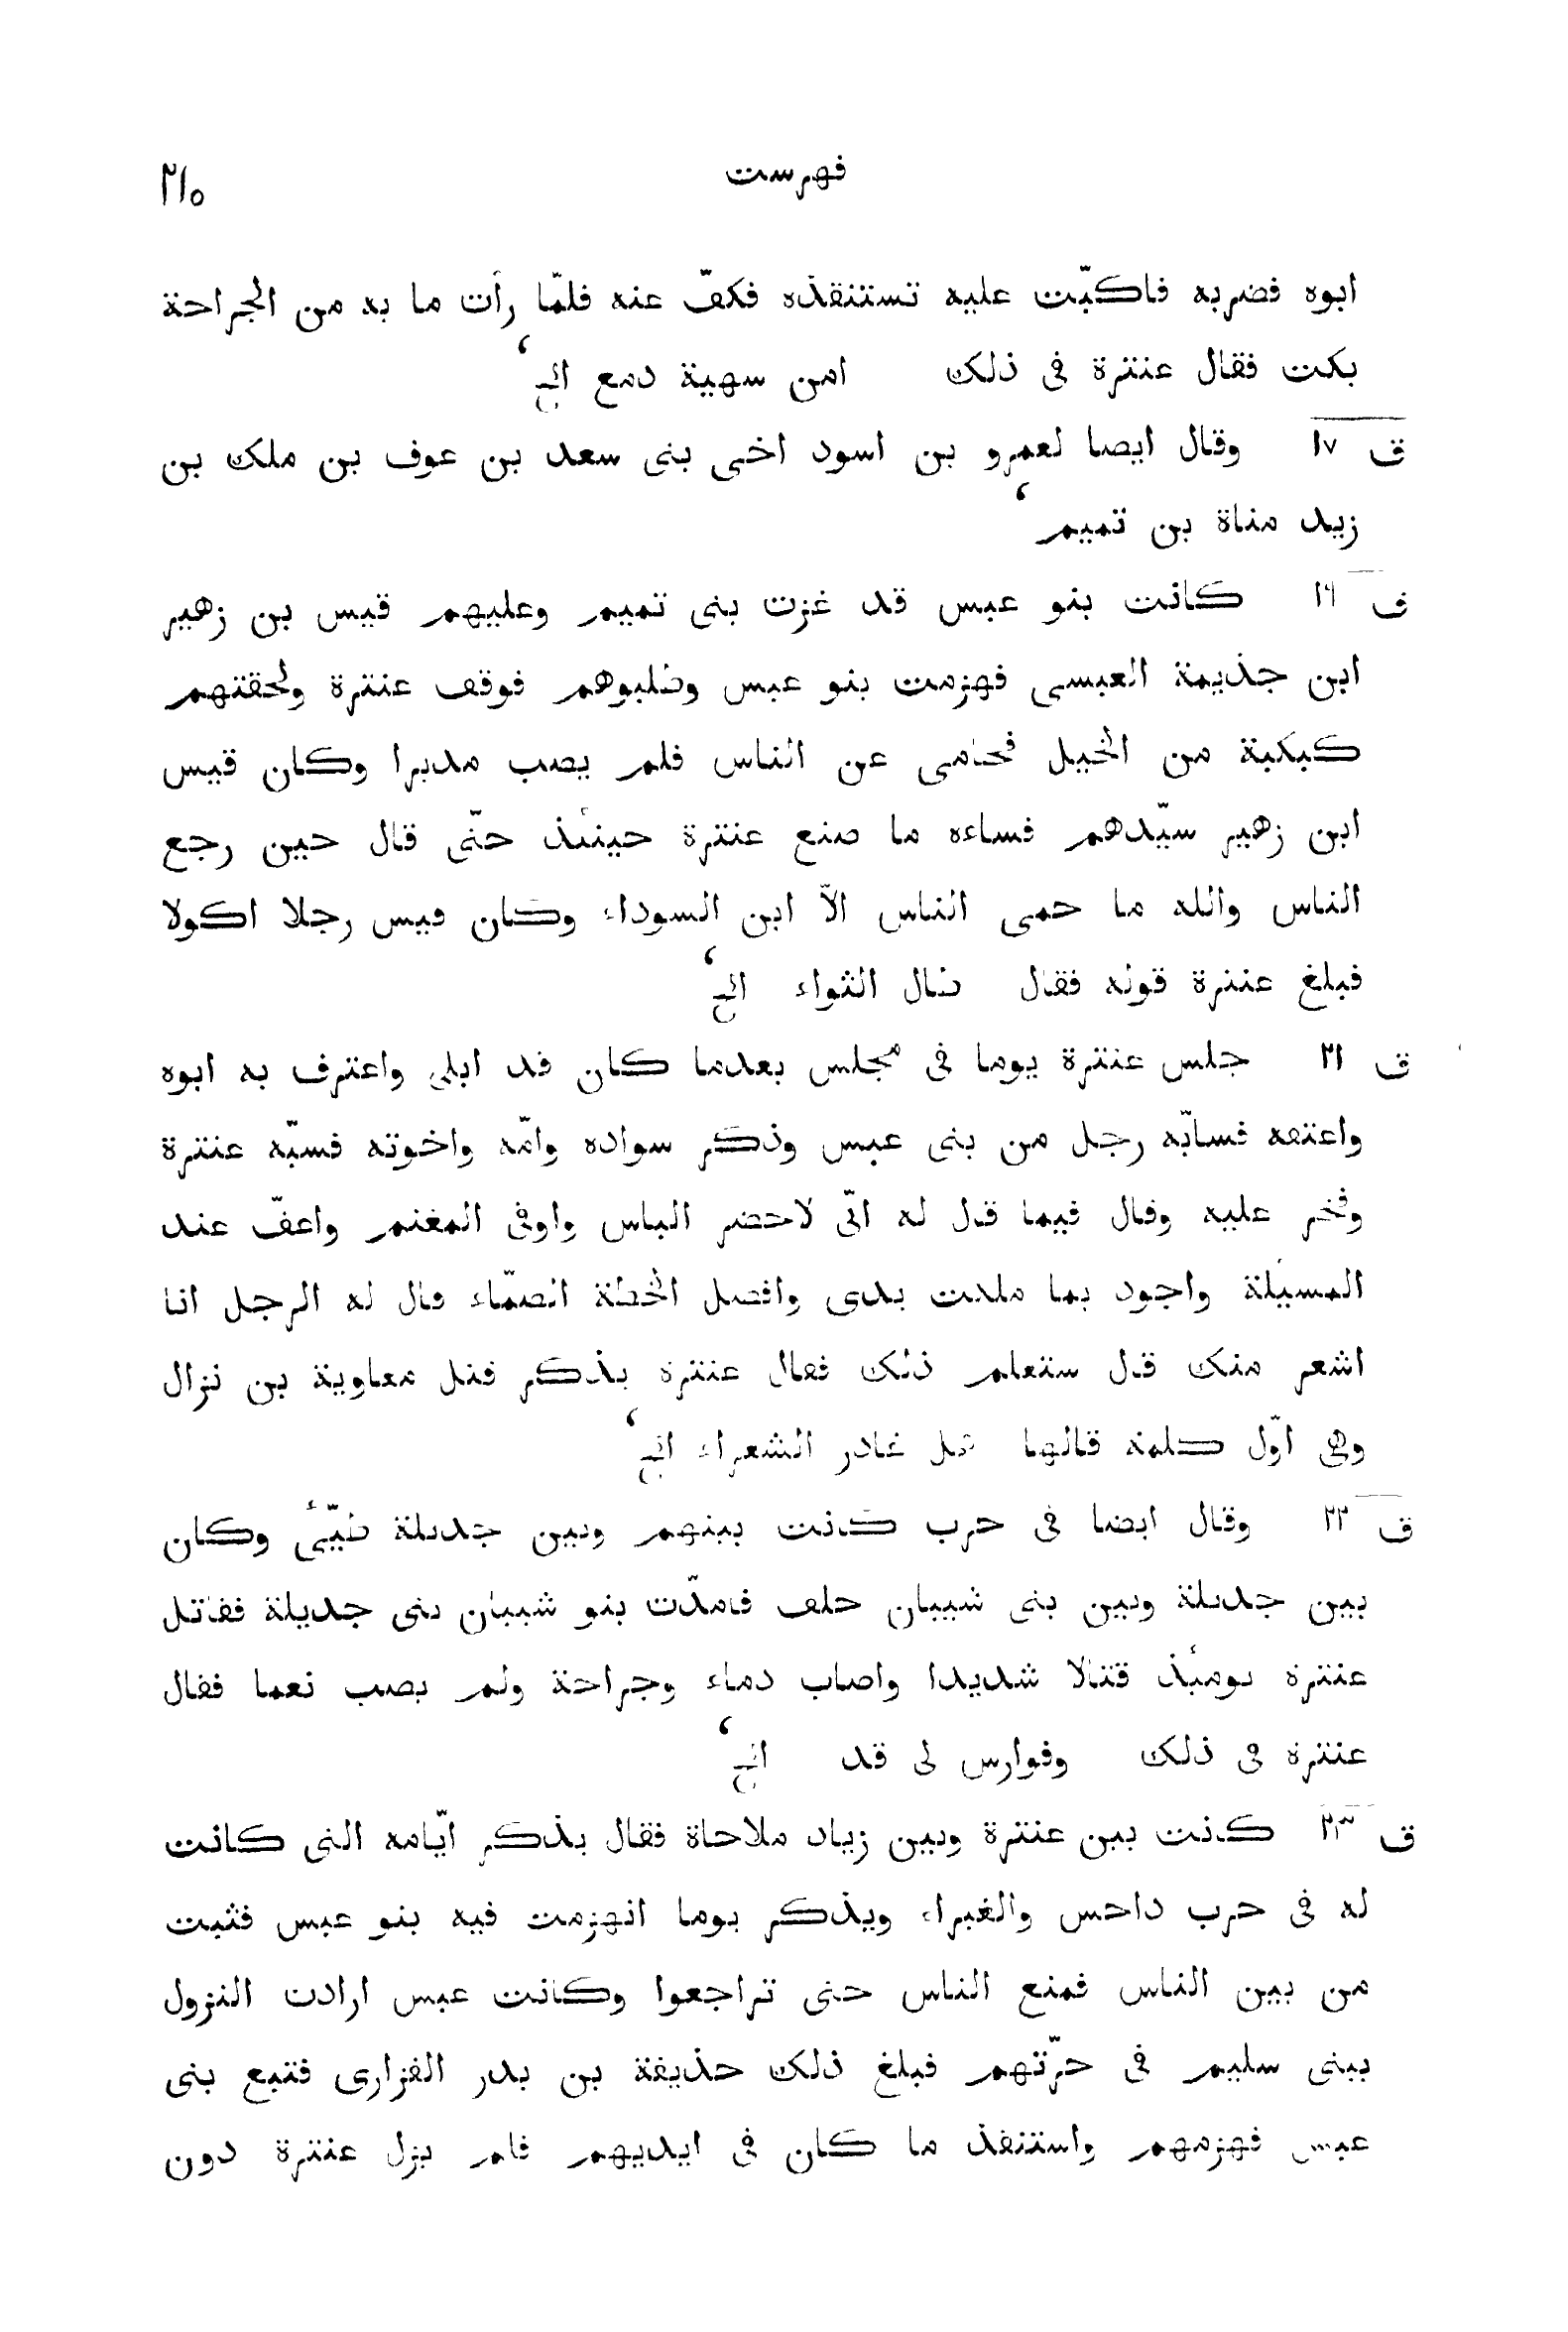 فهرست ٢١٥
ابوه فضربه فاكبّت عليه تستنقذه فكفّ عنه فلمّا رأت ما به من الجراحة
بكت فقال عنترة فى ذلك امن سهية دمع الخ،
ق ١٧ وقال ايضا لعمرو بن اسود اخى بنى سعد بن عوف بن ملك بن
زيد مناة بن تميم،
ق ١٩ كانت بنو عبس قد غزت بنى تميم وعليهم قيس بن زهير
ابن جذيمة العبسى فهزمت بنو عبس وطلبوهم فوقف عنترة ولحقتهم
كبكبة من الخيل فحامى عن الناس فلم يصب مدبرا وكان قيس
ابن زهير سيّدهم فساءه ما صنع عنترة حينئذ حتّى قال حين رجع
الناس والله ما حمى الناس الّا ابن السوداء وكان قيس رجلا اكولا
فبلغ عنترة قوله فقال طال الثواء الخ،
ق ٢١ جلس عنترة يوما فى مجلس بعدما كان قد ابلى واعترف به ابوه
واعتقه فسابّه رجل من بنى عبس وذكر سواده وامّه واخوته فسبّه عنترة
وفخر عليه وقال فيما قال له انّى لاحضر الباس واوفى المغنم واعفّ عند
المسئلة واجود بما ملكت يدى وافصل الخطة الصمّاء قال له الرجل انا
اشعر منك قال ستعلم ذلك فقال عنترة يذكر قتل معاوية بن نزال
وهى اوّل كلمة قالها هل غادر الشعراء الخ،
ق ٢٢ وقال ايضا فى حرب كانت بينهم وبين جديلة طيّئ وكان
بين جديلة وبين بنى شيبان حلف فامدّت بنو شيبان بنى جديلة فقاتل
عنترة يومئذ قتالا شديدا واصاب دماء وجراحة ولم يصب نعما فقال
عنترة فى ذلك وفوارس لى قد الخ،
ق ٢٣ كانت بين عنترة وبين زياد ملاحاة فقال يذكر ايّامه التى كانت
له فى حرب داحس والغبراء ويذكر يوما انهزمت فيه بنو عبس فثبت
من بين الناس فمنع الناس حتى تراجعوا وكانت عبس ارادت النزول
ببنى سليم فى حرّتهم فبلغ ذلك حذيفة بن بدر الفزارى فتبع بنى
عبس فهزمهم واستنقذ ما كان فى ايديهم فلم يزل عنترة دون